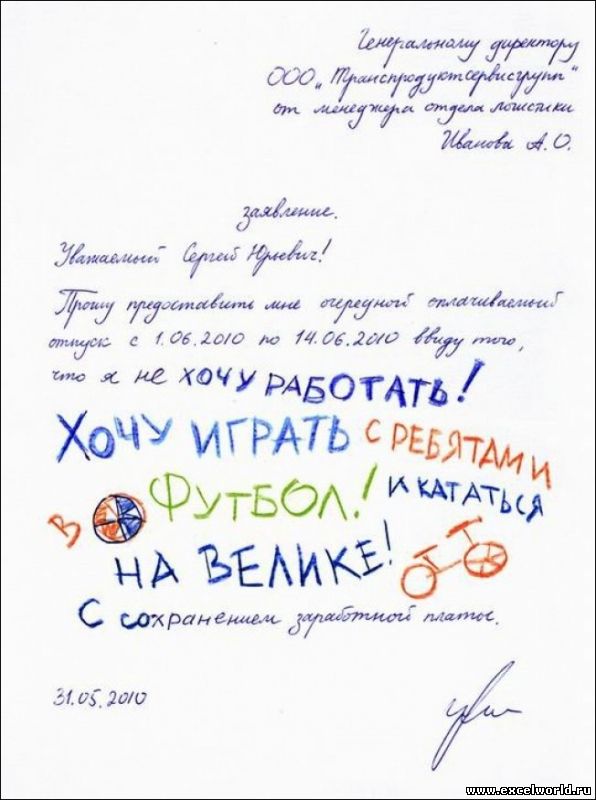 Генеральному директору
ООО „Транспродуктсервисгрупп“
от менеджера отдела логистики
Иванова А.О.
заявление.
Уважаемый Сергей Юрьевич!
Прошу предоставить мне очередной оплачиваемый
отпуск с 1.06.2010 по 14.06.2010 ввиду того,
что я не ХОЧУ РАБОТАТЬ!
ХОЧУ ИГРАТЬ С РЕБЯТАМИ
В ФУТБОЛ! И КАТАТЬСЯ
НА ВЕЛИКЕ!
С сохранением заработной платы.
31.05.2010
www.excelworld.ru